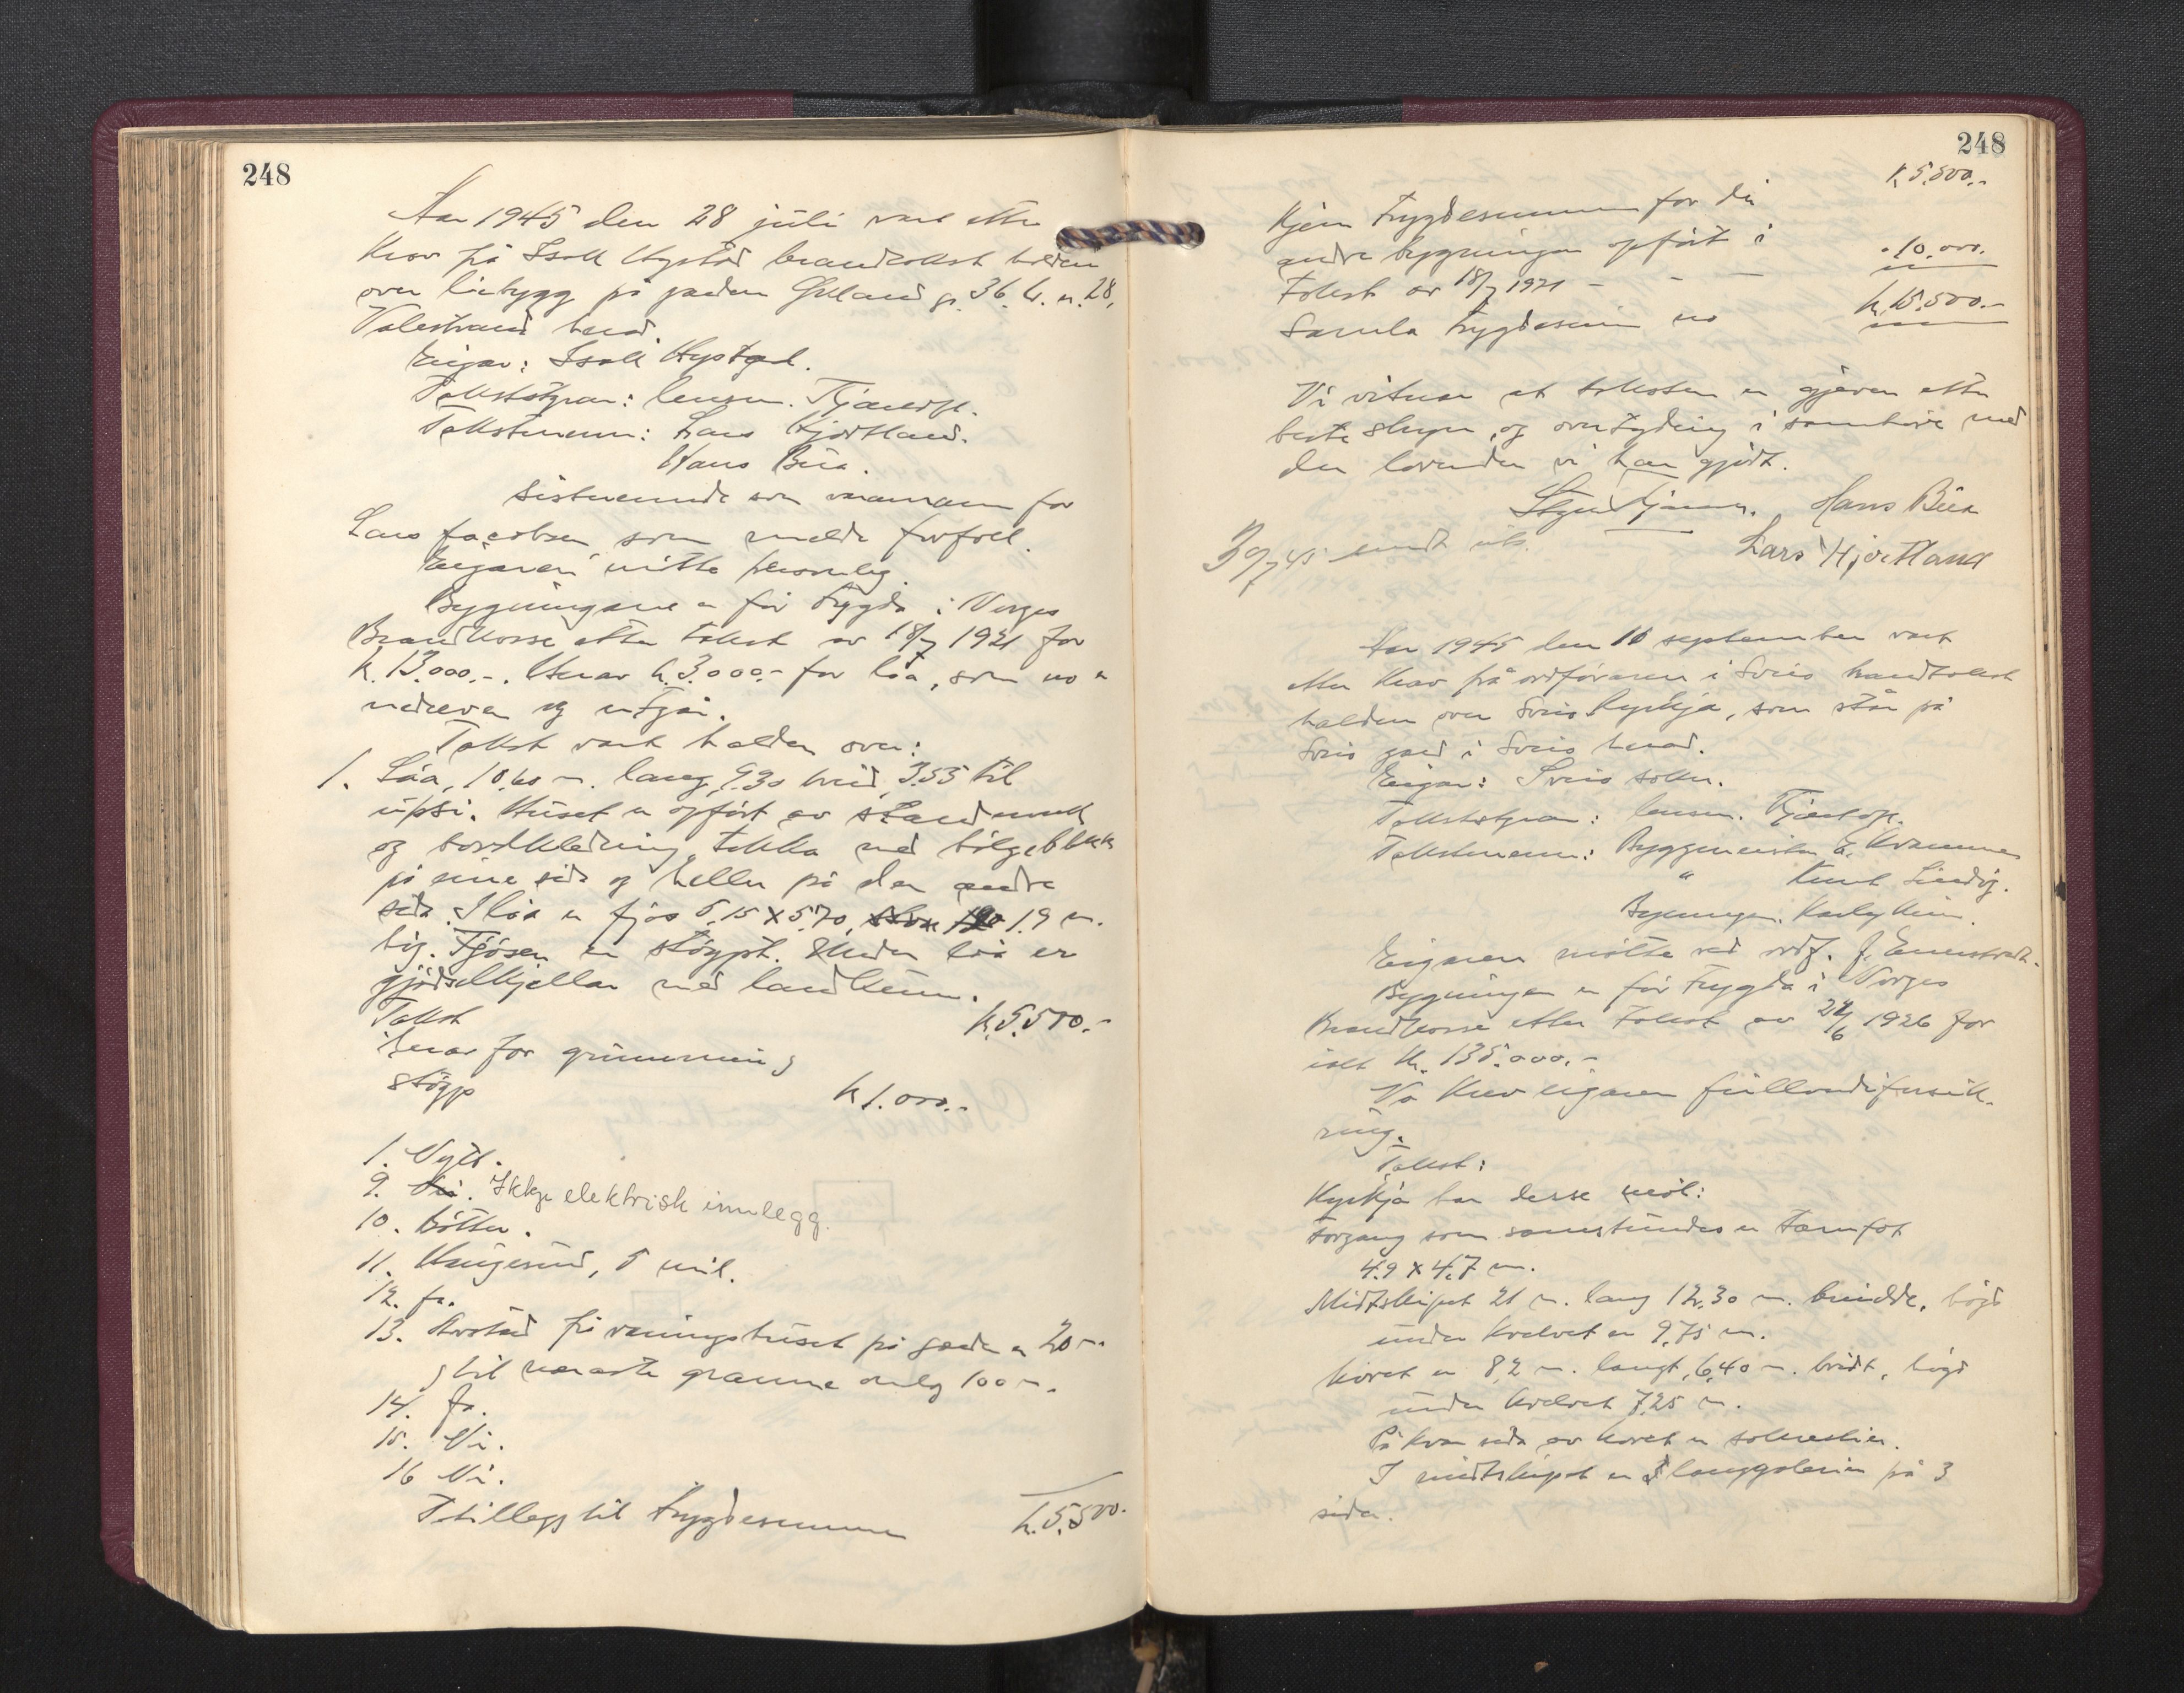 248
Aar 1945 den 28 juli vart etter
Krav på Isak Hystad brandtakst halden
over låebygg på garden Økland g. 36. b. n. 28,
Valestrand herad.
Eigar: Isak Hystad.
Takststyrar: lensm. Tjernagel.
Takstmenn: Lars Hjortland.
Hans Bua.
Sistnemnde som varamann for
Lars Jacobsen som melde forfall.
Eigaren møtte personleg.
Bygningane er før trygda i Norges
Brandkasse etter takst av 18/7 1921 for
k. 13.000.-. Herav k. 3.000.- for løa, som no er
nedreven og utgår.
Takst vart halden over:
1. Løa, 10.60 m. lang, 9.30 breid, 3.55 til
upsi. Huset er opført av standverk
og bordkledning, tekka med bølgeblekk
på eine sida og heller på den andre
sida. I løa er fjøs 5.15 x 5.70, 1.9 m.
høg. Fjøsen er støypt. Under løa er
gjødselkjellar med landkum.
Takst k. 5.500.-
herav for grunnmur og
støyp k 1.000.-
1. Nytt.
9. Nei. Ikkje elektrisk innlegg.
10. Bøtter.
11. Haugesund, 5 mil.
12. ja.
13. Avstand frå våningshuset på garden er 20 m.
og til næraste granne omlag 100 m.
14. Ja.
15. Nei.
16 Nei.
I tillegg til trygdesummen k. 5.500.-
248
k. 5.500.-
Kjem trygdesummen for dei
andre bygningar opført i
takst av 18/7 1921 - - - " 10.000.
Samla trygdesum no k. 15.500.-
Vi vitnar at taksten er gjeven etter
beste skyn og overtyding i samhøve med
den lovnaden vi har gjort.
Hans Bua
30/7 45 sendt uts. Lars Hjortland
Aar 1945 den 10 september vart
etter krav frå ordføraren i Sveio brandtakst
halden over Sveio Kyrkja, som står på
Sveio gard i Sveio herad.
Eigar: Sveio sokn.
Takststyrar: lensm. Tjernagel.
Takstmenn: Byggmeister E. Kvamme
" Knut Lindøy.
Bygningm. Karly Heim.
Eigaren møtte ved ordf. J. Emerstvedt.
Bygningen er før trygda i Norges
Brandkasse etter takst av 24/6 1926 for
ialt kr. 135.000.-
No krev eigaren fullverdiforsik-
ring.
Takst:
Kyrkja har desse mål:
Forgang som samstundes er tarnfot
4.9 x 4.7 m.
Midtskipet 21 m. lang 12.30 m. breidde, høgd
under kvelvet er 9.75 m.
Koret er 8,2 m. langt, 6.40 m. bredt, høgd
under kvelvet 7.25 m.
På kvar side av koret er sakrestier.
I midtskipet er langgalerier på 3
sider.